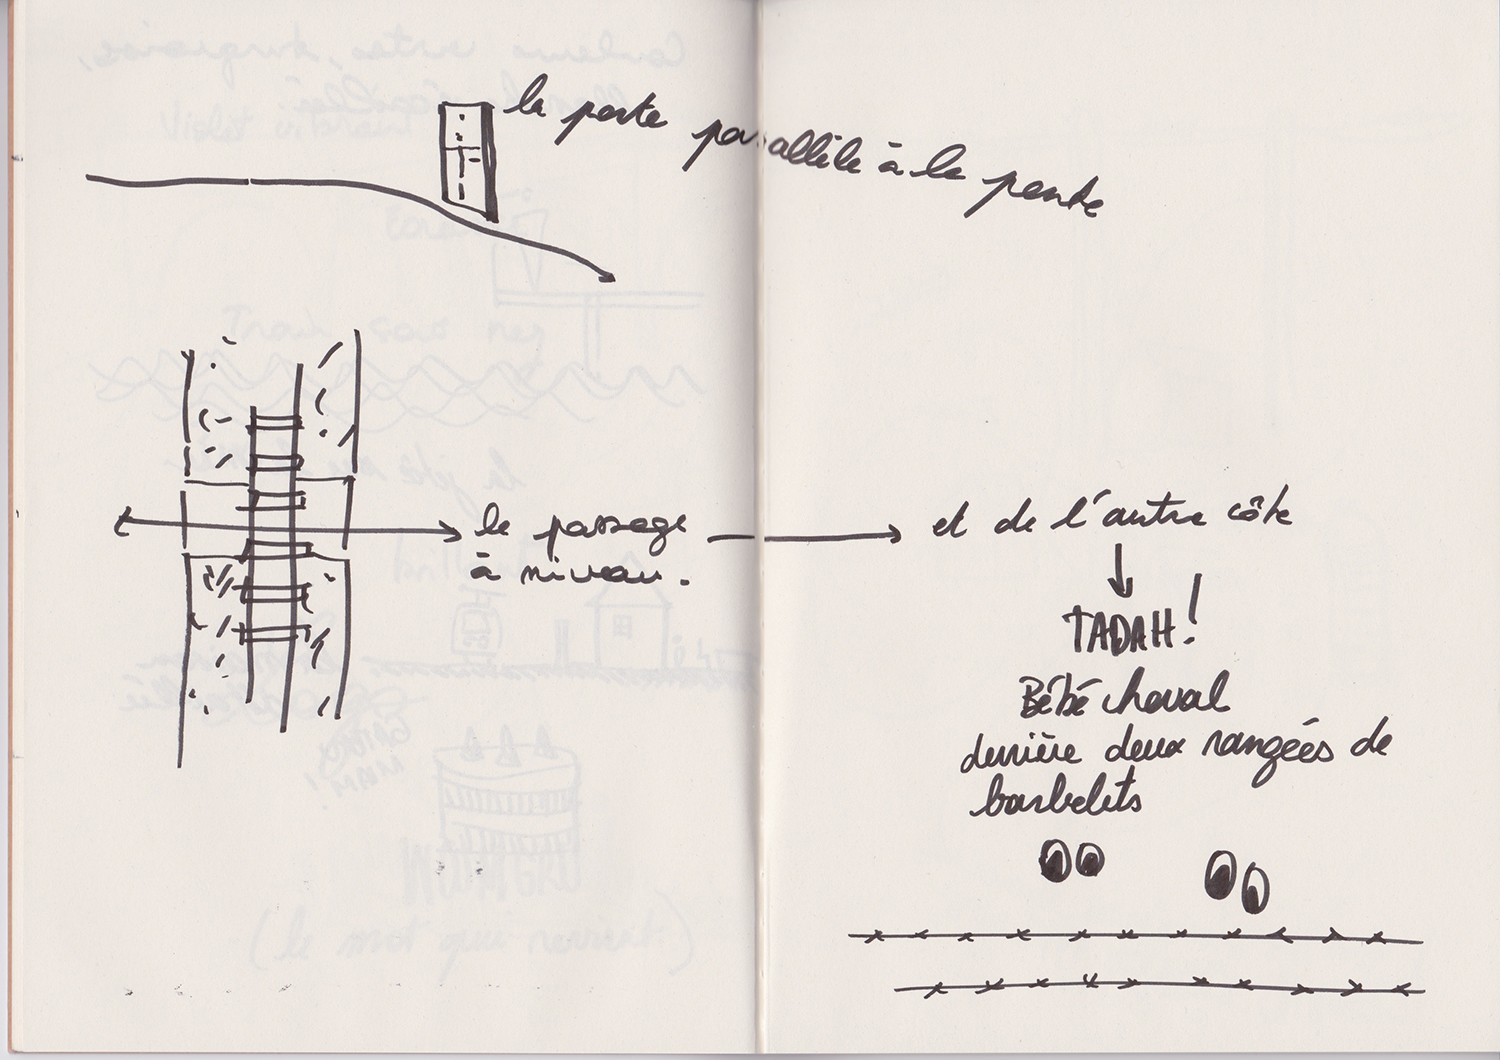 la porte parallèle à la pente
le passage
à niveau.
et de l'autre côté
TADAH!
Bébé cheval
derrière deux rangées de
barbelets
(le mot qui revient.)